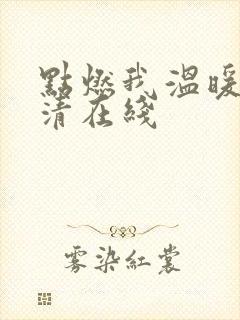 點燃我 溫暖
清在綫
雾染紅裳